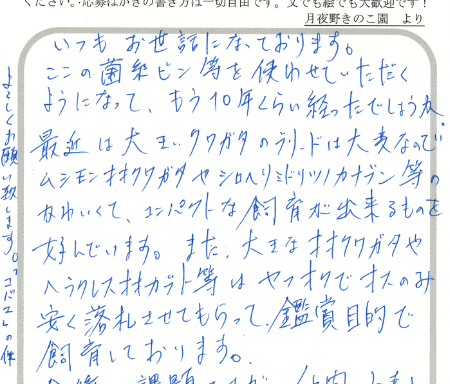 ください。応募はがきの書き方は一切自由です。文でも絵でも大歓迎です！
月夜野きのこ園　より
いつもお世話になっております。
ここの菌糸ビン等を使わせていただく
ようになって、もう10年くらい経ったでしょうか。
最近は大王いクワガタのブリードは大変なので、
ムシモンオオクワガタやシロヘリミドリツノカナブン等の
かわいくて、コンパクトな飼育が出来るものを
好んでいます。また、大王なオオクワガタや
ヘラクレスオオカブト等はヤフオクでオスのみ
安く落札させてもらって、鑑賞目的で
飼育しております。
よろしくお願い致します。